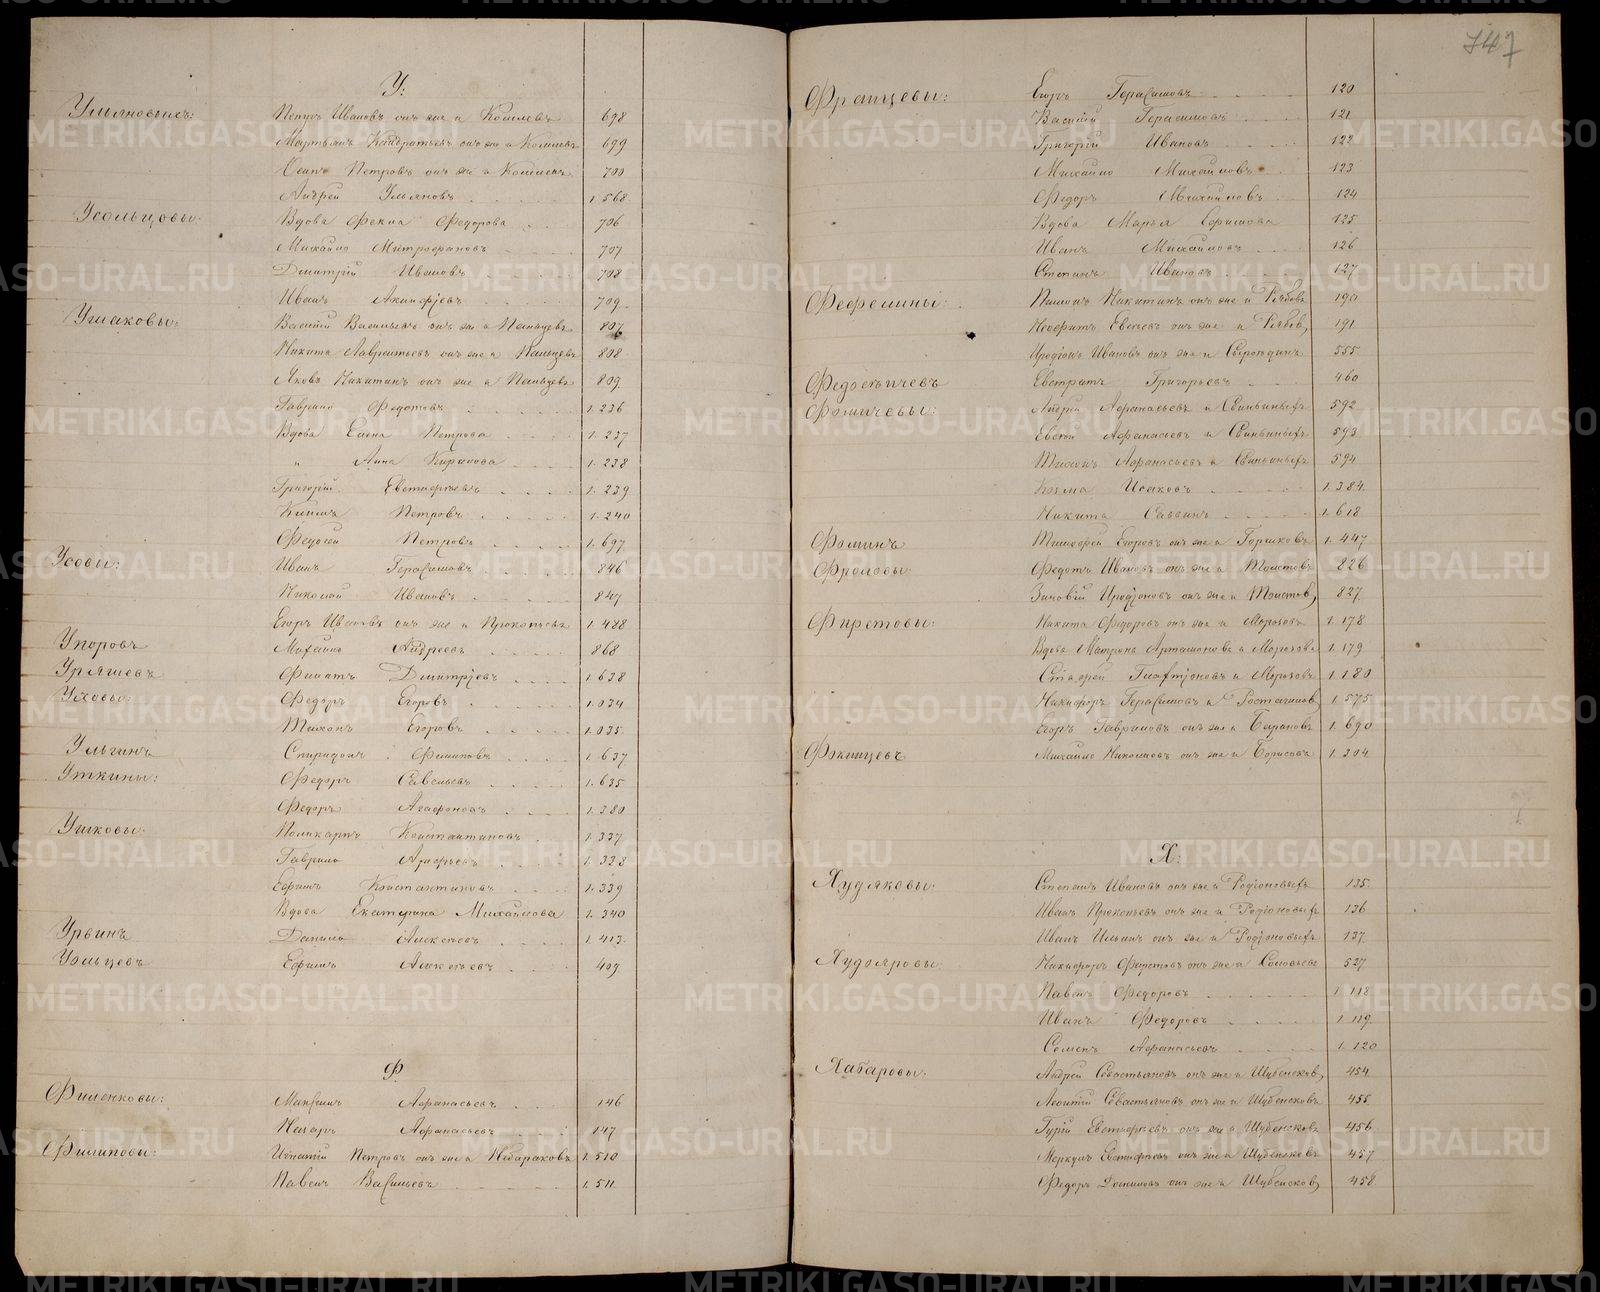 У:
Ульяновыхъ: Петръ Ивановъ онъ же и Кошлевъ 698
Мартьянъ Кондратьевъ онъ же и Кошлевъ 699
Осипъ Петровъ онъ же и Кошлевъ 700
Андрей Ульяновъ 1.568
Усольцовы: Вдова Фекла Федорова 706
Михайло Митрофановъ 707
Дмитрій Ивановъ 708
Иванъ Акинфіевъ 709
Ушаковы: Василій Васильевъ онъ же и Пальцевъ 807
Никита Лаврентьевъ онъ же и Пальцевъ 808
Яковъ Никитинъ онъ же и Пальцевъ 809
Гаврило Федотовъ 1.236
Вдова Елена Петрова 1.237
" Анна 1.238
Григорій Евстифеевъ 1.239
Петровъ 1.240
Федосей Петровъ 1.697
Усовы: Иванъ Герасимовъ 846
Николай Ивановъ 847
Егоръ Ивановъ онъ же и Прокопьевъ 1.428
Упоровъ Михайло Андреевъ 868
Уряшевъ Филатъ Дмитріевъ 1.638
Уховы: Федоръ Егоровъ 1.034
Тихонъ Егоровъ 1.035
Ульгинъ Спиридонъ Филиповъ 1.637
Уткины: Федоръ Савельевъ 1.635
Федоръ Агафоновъ 1.380
Ушковы: Поликарпъ Константиновъ 1.337
Гаврило Арефьевъ 1.338
Ефимъ Константиновъ 1.339
Вдова Екатерина Михайлова 1.340
Урвинъ Данило Алексеевъ 1.413
Уольцевъ Ефимъ Алексеевъ 409
Ф
Филенковы: Максимъ Афанасьевъ 146
Назаръ Афанасьевъ 147
Филиповы: Игнатій Петровъ онъ же и 1.510
Павелъ Васильевъ 1.511
747
Францевы: Егоръ Герасимовъ 120
Василій Герасимовъ 121
Григорій Ивановъ 122
Михайло Михайловъ 123
Федоръ Михайловъ 124
Вдова Марья Ефимова 125
Иванъ Михайловъ 126
Степанъ Ивановъ 127
Фефелины: Никитинъ онъ же и Рябовъ 190
Неофитъ Евсеевъ онъ же и Рябовъ 191
Иродіонъ Ивановъ онъ же и 555
Федосеичевъ Евстратъ Григорьевъ 460
Фомичевы: Андрей Афанасьевъ и Свиньиныхъ 592
Евсей Афанасьевъ и Свиньиныхъ 593
Тихонъ Афанасьевъ и Свиньиныхъ 594
Козма Исаковъ 1.384
Никита Саввинъ 1.618
Фоминъ Тимофей Егоровъ онъ же и Горшковъ 1.447
Фроловы: Федотъ Ивановъ онъ же и Толстовъ 826
Зиновій Иродіоновъ онъ же и Толстовъ 827
Фирстовы: Никита Федоровъ онъ же и Морозовъ 1.178
Вдова Матрона Артамонова и Морозова 1.179
и Морозовъ 1.180
Никифоръ Герасимовъ и 1.575
Егоръ Гавриловъ онъ же и Барановъ 1.690
Фокинцевъ Михайло Николаевъ онъ же и Борисовъ 1.304
Х:
Худяковы: Степанъ Ивановъ онъ же и Родіоновыхъ 135
Иванъ Прокопьевъ онъ же и Родіоновыхъ 136
Иванъ Ильинъ онъ же и Родіоновыхъ 137
Худояровы: Никифоръ Фирстовъ онъ же и Соловьевъ 527
Павелъ Федоровъ 1.118
Иванъ Федоровъ 1.119
Семенъ Афанасьевъ 1.120
Хабаровы: Андрей Севастьяновъ онъ же и Шубенсковъ 454
Леонтій Севастьяновъ онъ же и Шубенсковъ 455
Гурій Евстифеевъ онъ же и Шубенсковъ 456
Меркулъ Евстифеевъ онъ же и Шубенсковъ 457
Федоръ Даниловъ онъ же и Шубенсковъ 458